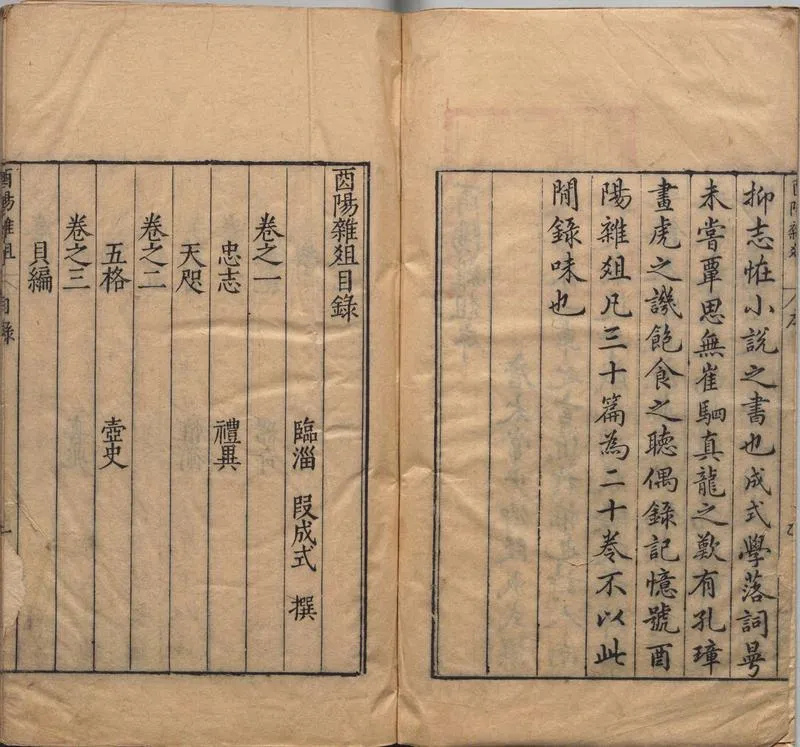 抑志恠小說之書也成式學落詞曼
未嘗覃思無崔駰真龍之歎有孔璋
畫虎之譏飽食之聴偶錄記憶號酉
陽雜爼凡三十篇為二十卷不以此
間錄味也
酉陽雜爼目錄
臨淄 段成式 撰
卷之一
忠志 禮異
天咫
卷之二
五格 壺史
卷之三
貝編
酉陽雜爼 目錄 一